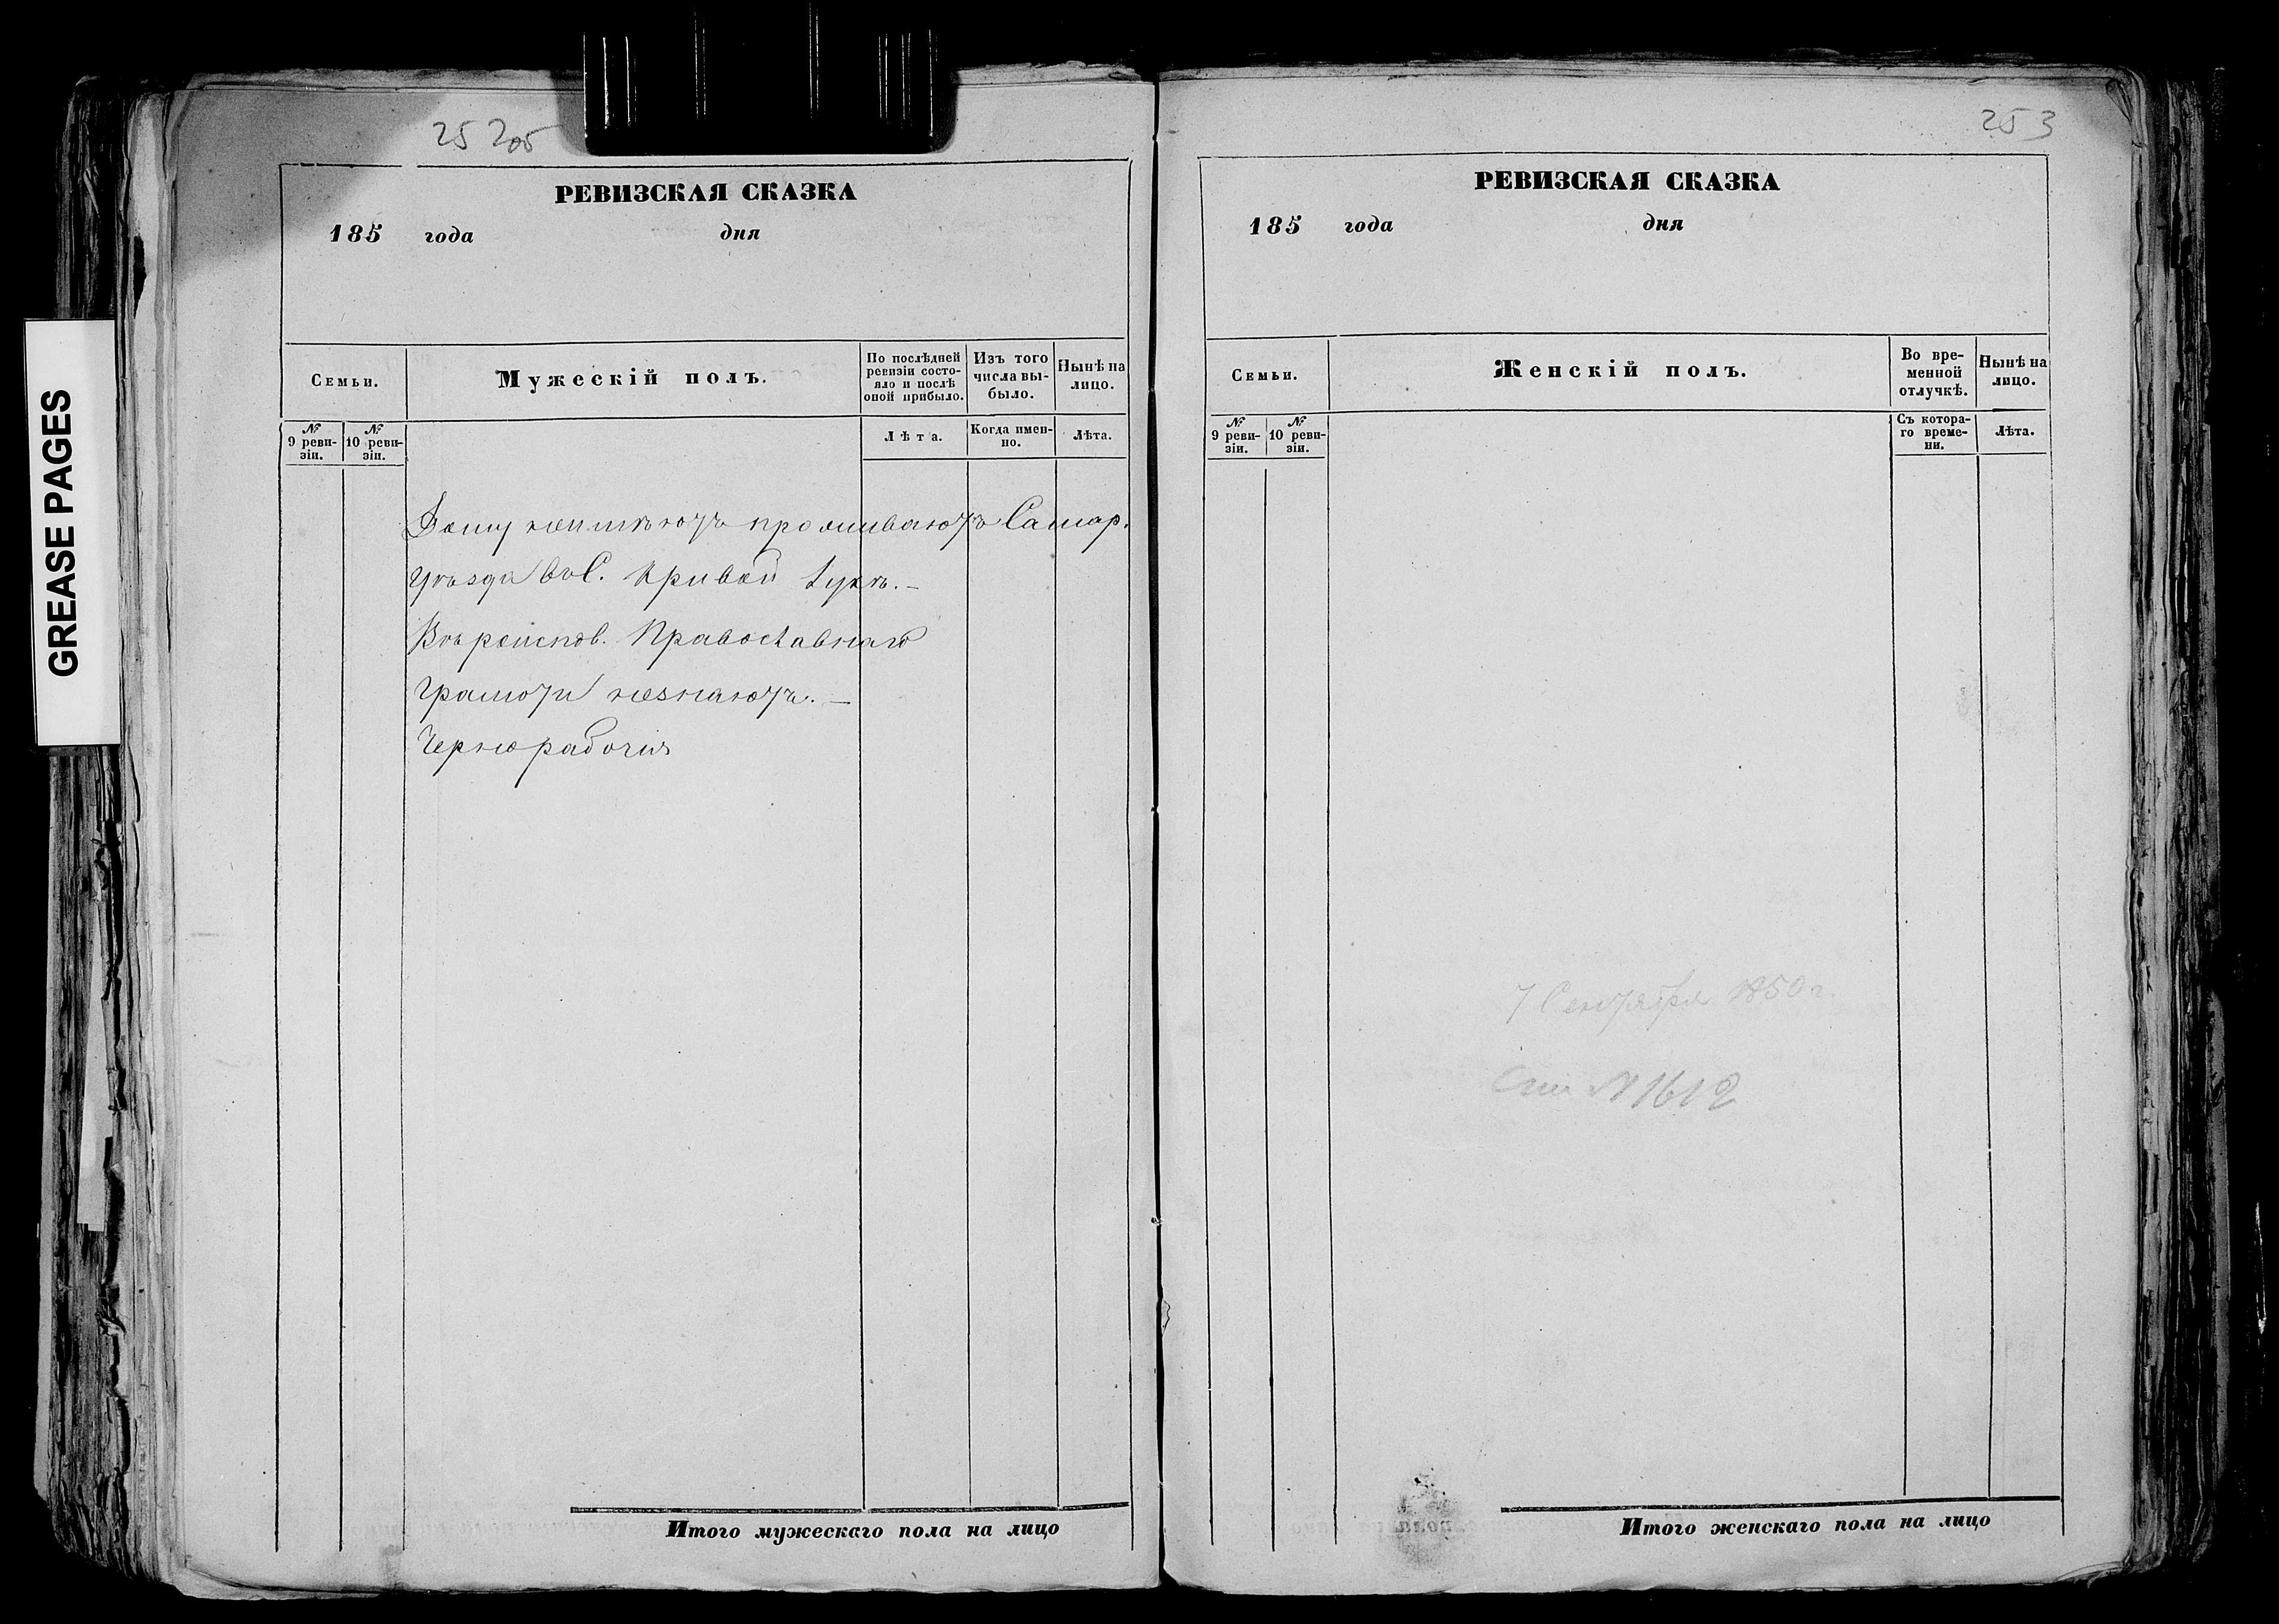 GREASE PAGES
25 205
РЕВИЗСКАЯ СКАЗКА
185 года дня
Семьи.
Мужескій полъ.
По послѣдней ревизіи состояло и послѣ оной прибыло.
Изъ того числа выбыло.
Нынѣ на лицо.
№ 9 ревизіи.
№ 10 ревизіи.
Лѣта.
Когда именно.
Лѣта.
Дому неимѣютъ проживаютъ Самар.
уѣзда въ С. Кривой Лукѣ. —
Вѣроиспов. Православнаго
Грамоти незнаютъ. —
Чернорабочіи
Итого мужескаго пола на лицо
253
РЕВИЗСКАЯ СКАЗКА
185 года дня
Семьи.
Женскій полъ.
Во временной отлучкѣ.
Нынѣ на лицо.
№ 9 ревизіи.
№ 10 ревизіи.
Съ котораго времени.
Лѣта.
7 Сентября 1850 г.
№ 1612
Итого женскаго пола на лицо